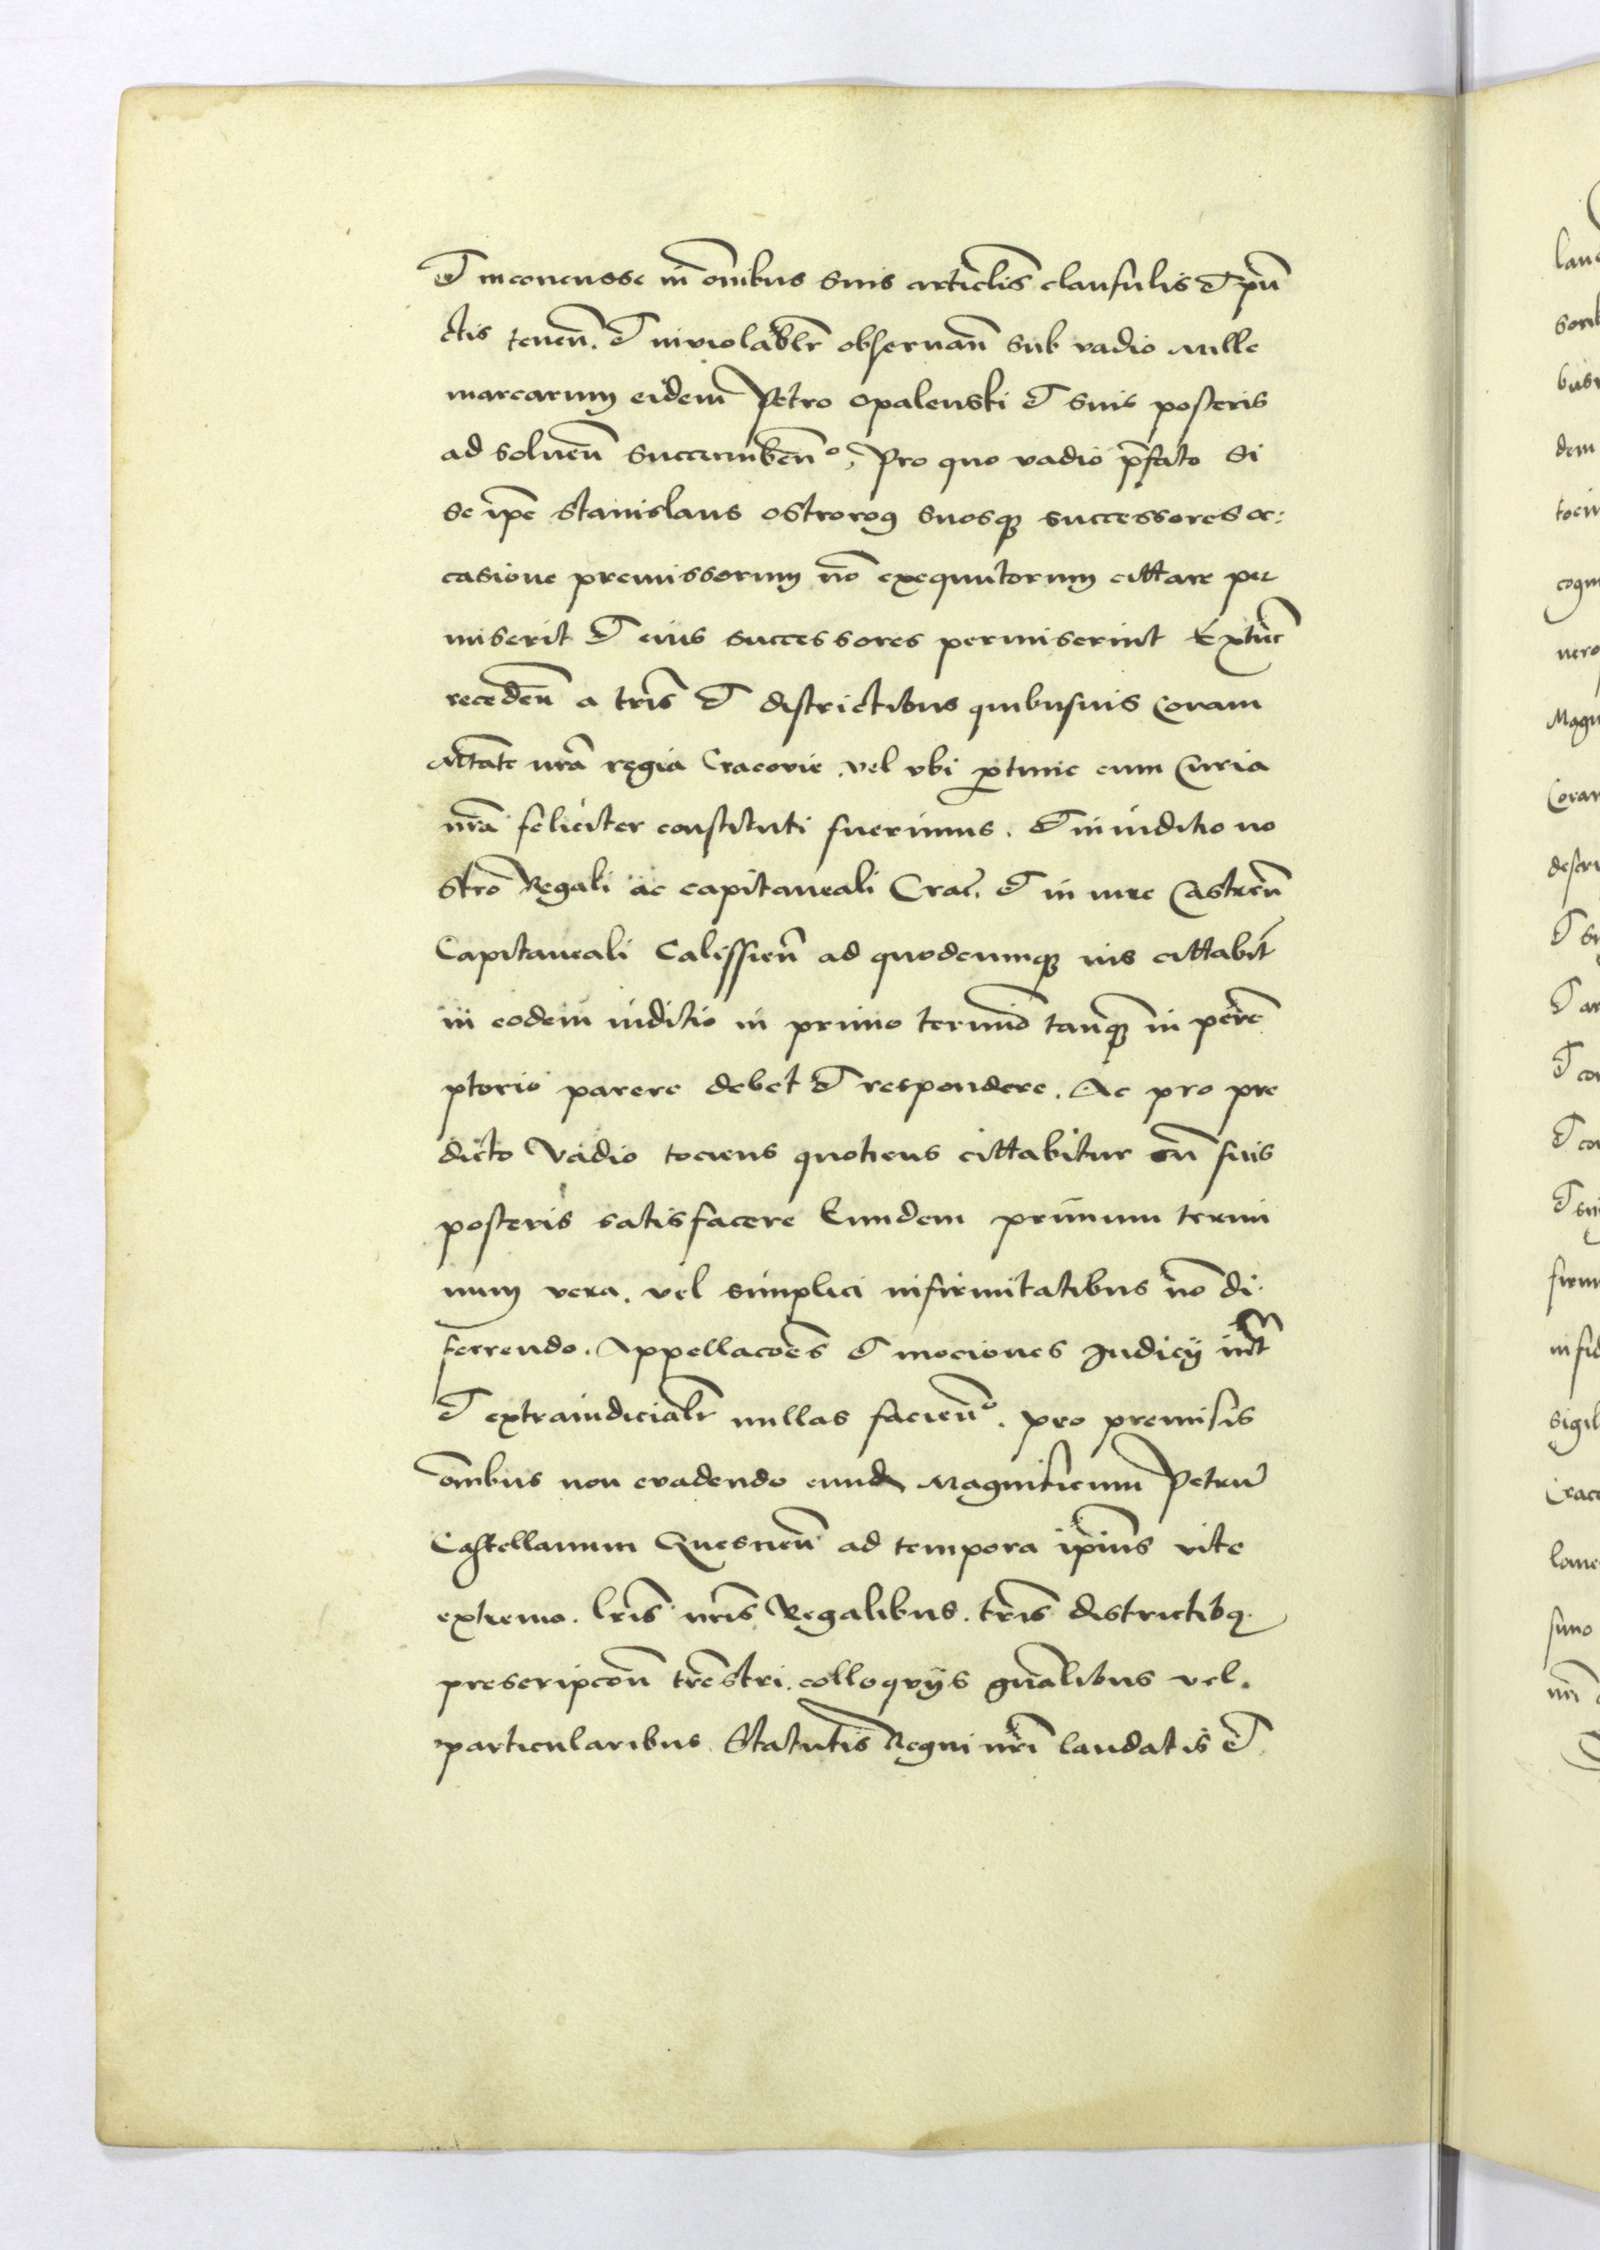 et inconcusse in o͞mibus suis artic͞lis clausulis et pu͞n
ctis tene͞n. et inviolabl͞r observa͞n sub vadio Mille
marcarum eidem Petro Opalenski et suis posteris
ad solve͞n succumbe͞nᵒ, Pro quo vadio p͞fato Si
se ip͞e Stanislaus Ostrorog suosq̨ successores oc:
casione premissorum no͞ exequutorum cittare per
miserit et eius successores permiserint Extu͞c
recede͞n a tr͞is et districtibus quibusuis Coram
M͞tate n͞ra regia Cracovie. vel ubi p̱tunc cum Curia
n͞ra feliciter constituti fuerimus. Et in iuditio no
stro Regali ac capitaneali Cra͞c. et in iure Castre͞n
Capitaneali Calissie͞n ad quodcumq̨ ius cittabit᷑
in eodem iuditio in primo termi͞o tanq̨ in pere͞
ptorio parere debet et respondere. Ac pro pre
dicto Vadio tociens quotiens cittabitur cu͞ suis
posteris satisfacere Eundem primum termi
num vera. vel simplici infirmitatibus no͞ di
ferrendo. Appellaco͞es et mociones Iudicij int͞
et extraiudicial͞r nullas facie͞nᵒ. pro premisis
o͞mibus non evadendo eund͞ Magnificum Petru͞
Castellanum Gnesne͞n ad tempora ip͞ius vite
extremo. l͞ris n͞ris Regalibus. t͞ris districtibq̨
prescripco͞n tr͞estri. colloqvijs gn͞alibus vel.
particularibus Statutis Regni n͞ri laudatis et